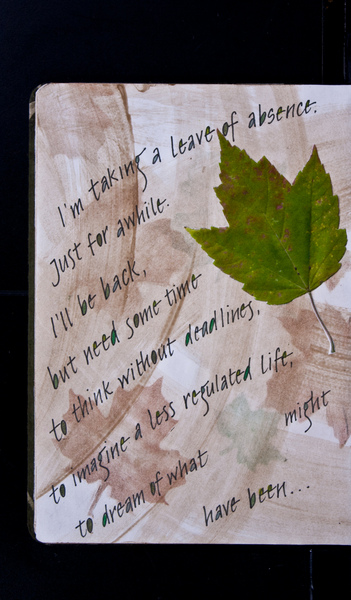 I'm taking a leave of absence.
Just for awhile.
I'll be back,
but need some time
to think without deadlines,
to imagine a less regulated life,
to dream of what might
have been...